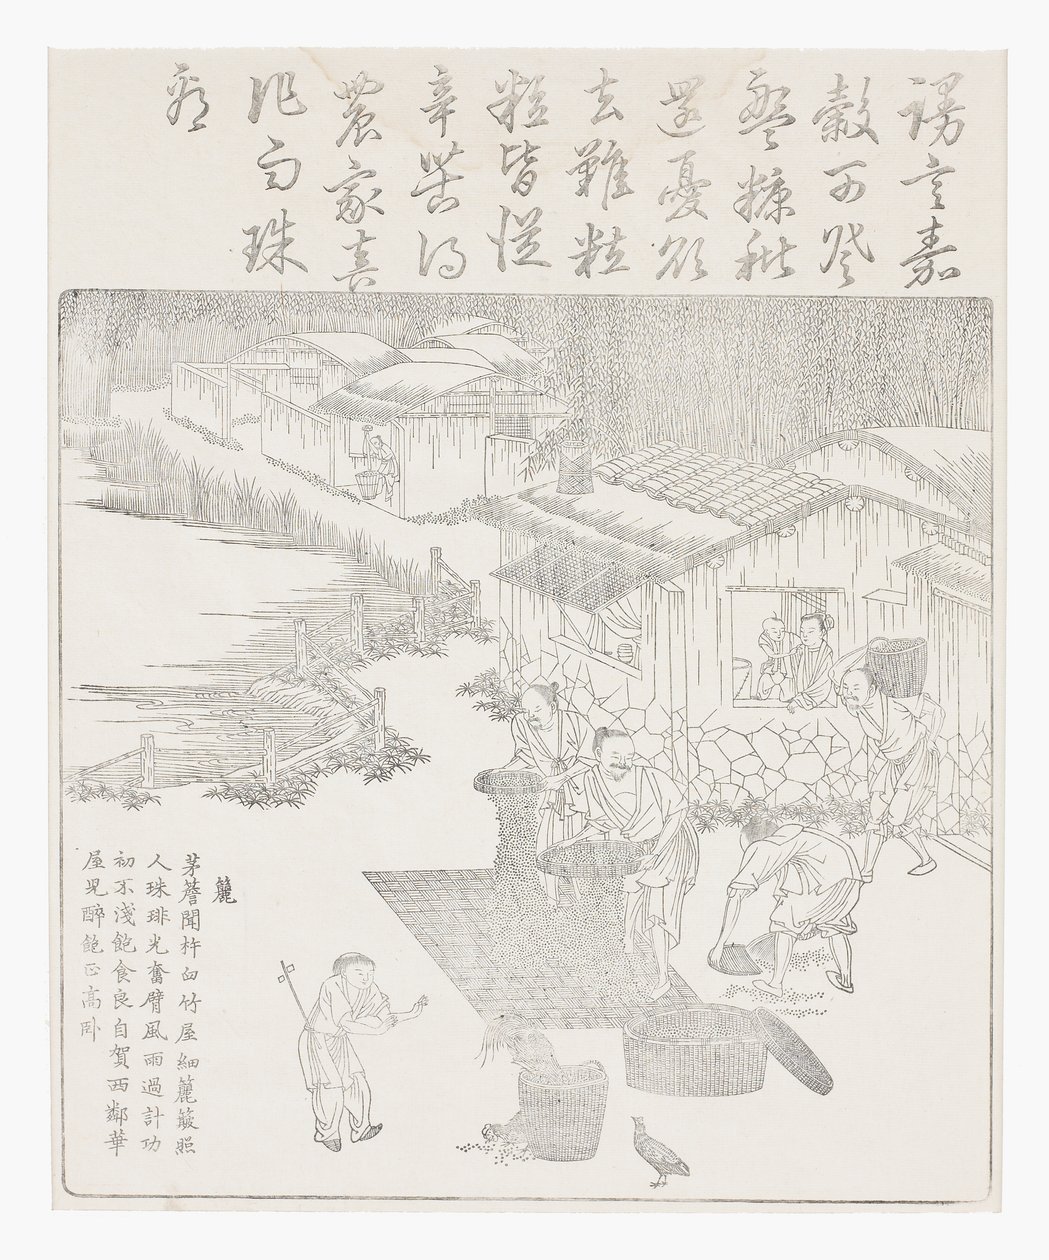 謾言嘉
穀可登
盤糠秕
還憂欲
去難粒
粒皆從
辛苦得
農家真
作白珠
看
簏
茅簷聞杵臼竹屋細簏簸照
人珠琲光奮臂風雨過計功
初不淺飽食良自賀西鄰華
屋兒醉飽正高卧